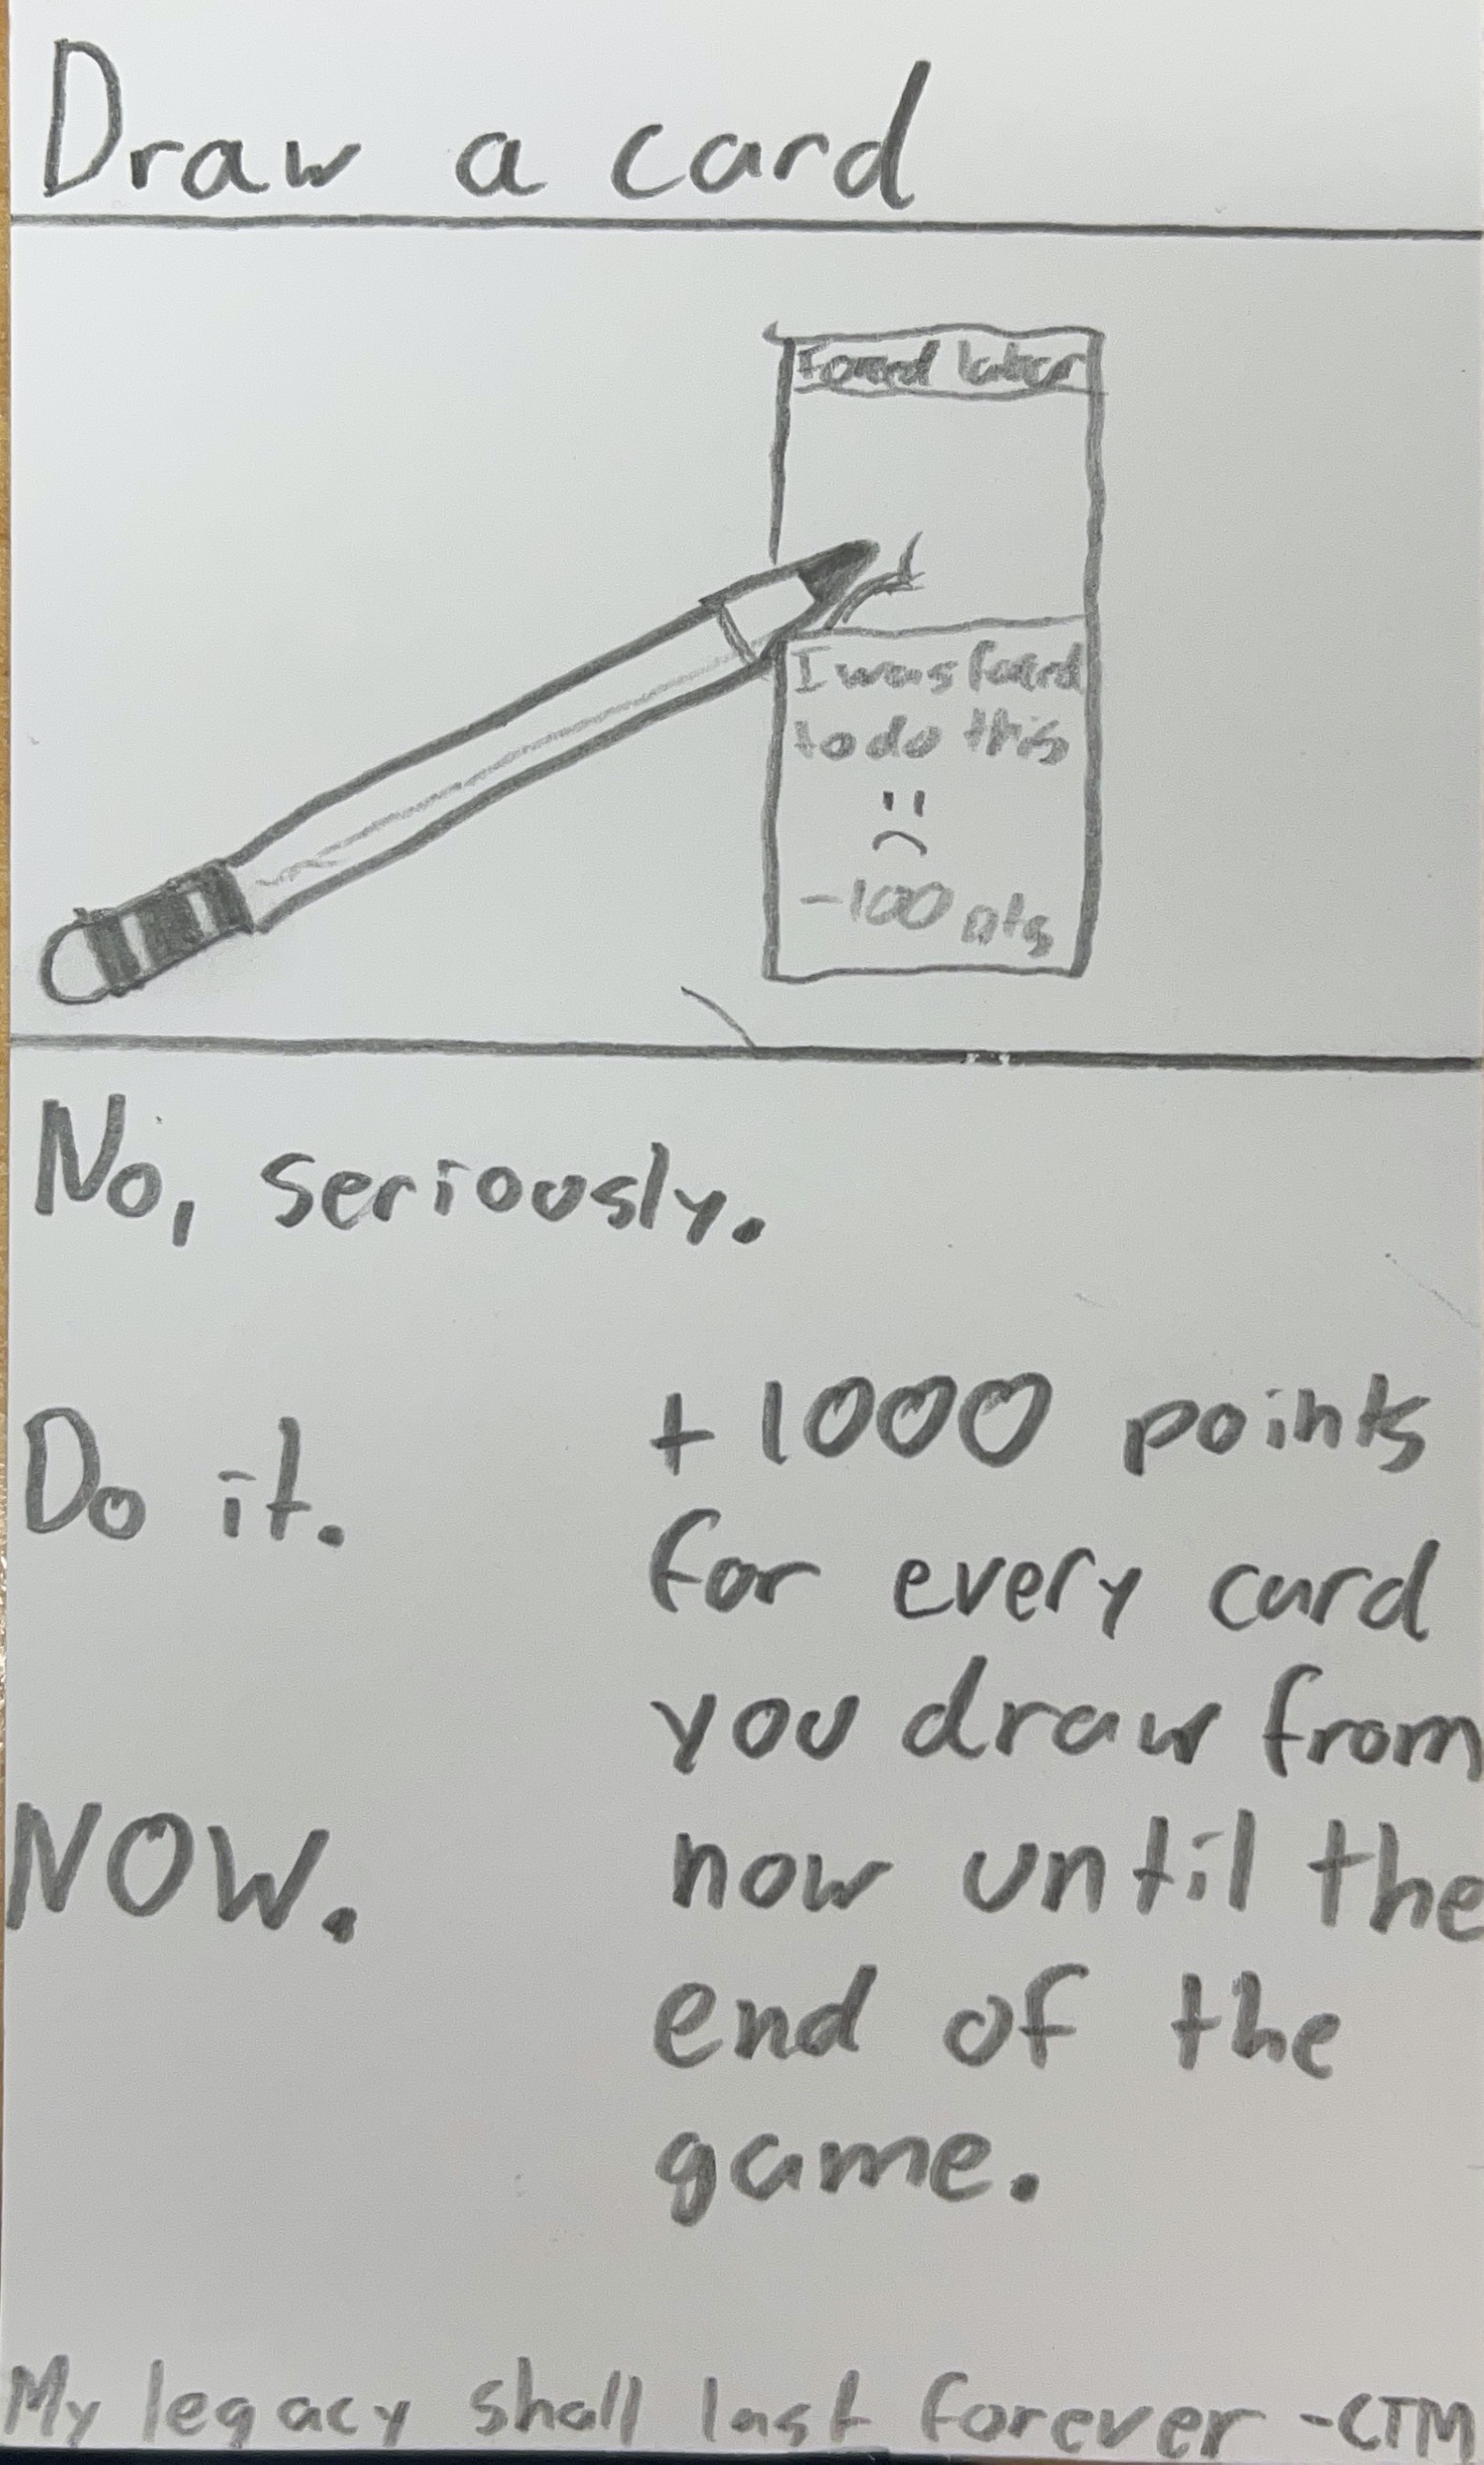 Draw a card
Forced labor
I was forced
to do this
-100 pts
No, seriously.
Do it.
NOW.
+1000 points
for every card
you draw from
now until the
end of the
game.
My legacy shall last forever -CTM